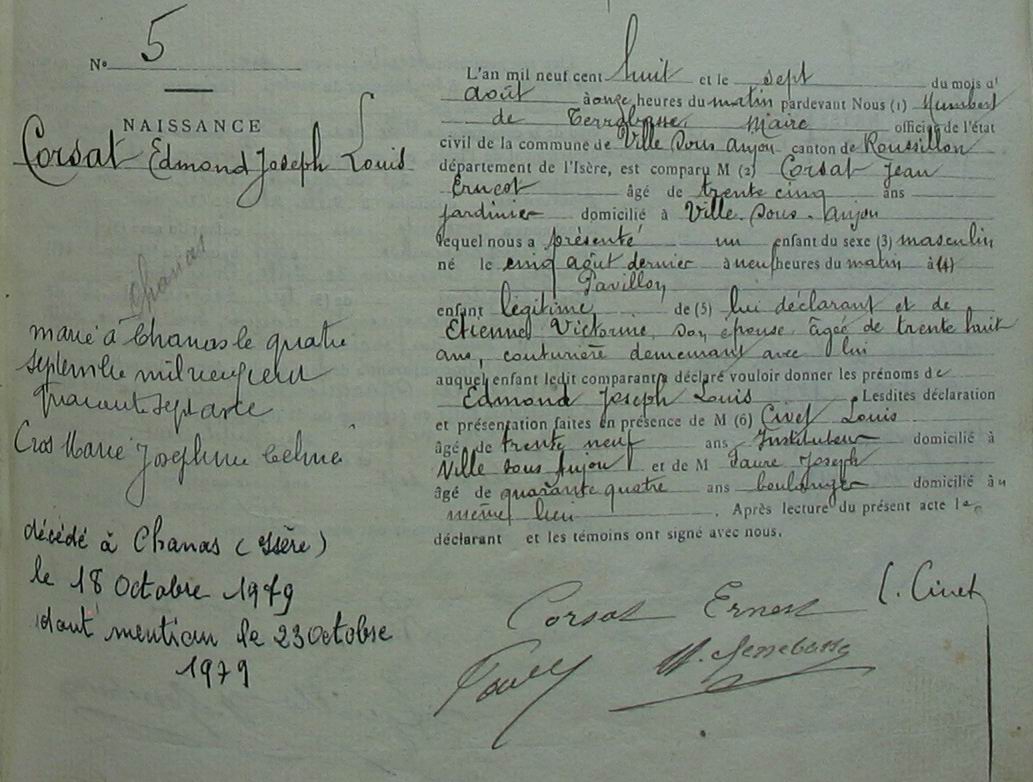 N° 5
NAISSANCE
Corsat Edmond Joseph Louis
Chanas
marié à Chanas le quatre
septembre mil neuf cent
quarante sept avec
Cros Marie Joséphine
décédé à Chanas (Isère)
le 18 Octobre 1979
dont mention le 23 Octobre
1979
L'an mil neuf cent huit et le sept du mois d'
août à onze heures du matin pardevant Nous (1) Humbert
de Terrebasse, Maire officier de l'état
civil de la commune de Ville Sous Anjou canton de Roussillon
département de l'Isère, est comparu M (2) Corsat Jean
Ernest âgé de trente cinq ans
jardinier domicilié à Ville-sous-Anjou
lequel nous a présenté un enfant du sexe (3) masculin
né le cinq août dernier à neuf heures du matin à (4)
Pavillon
enfant légitime de (5) lui déclarant et de
Etienne Victorine, son épouse âgée de trente huit
ans, couturière demeurant avec lui
auquel enfant ledit comparant a déclaré vouloir donner les prénoms de
Edmond Joseph Louis Lesdites déclaration
et présentation faites en présence de M (6) Civet Louis
âgé de trente neuf ans Instituteur domicilié à
Ville sous Anjou et de M Faure Joseph
âgé de quarante quatre ans boulanger domicilié au
même lieu. Après lecture du présent acte le
déclarant et les témoins ont signé avec nous.
Corsat Ernest L. Civet
Faure H. Terrebasse